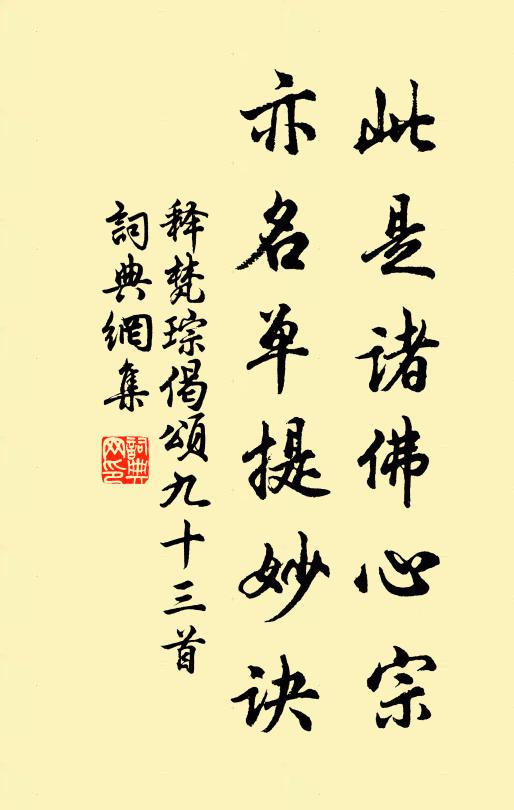 此是诸佛心宗
亦名单提妙诀
释梵琮偈颂九十三首
词典網集
詞典网印